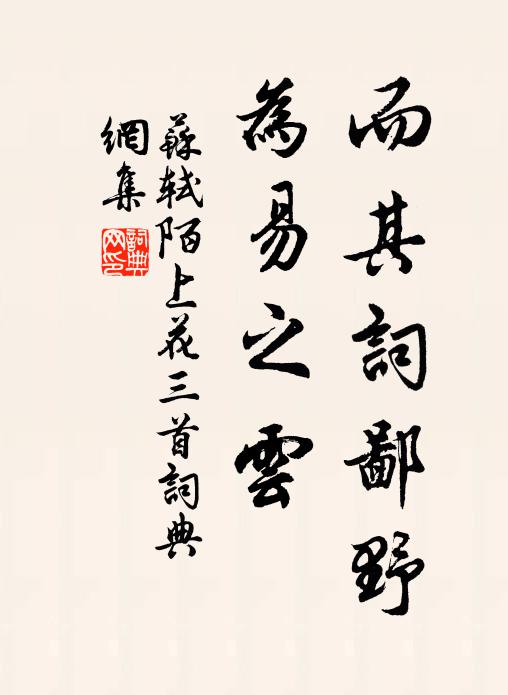 而其詞鄙野
為易之雲
蘇軾陌上花三首詞典
網集
詞典網印